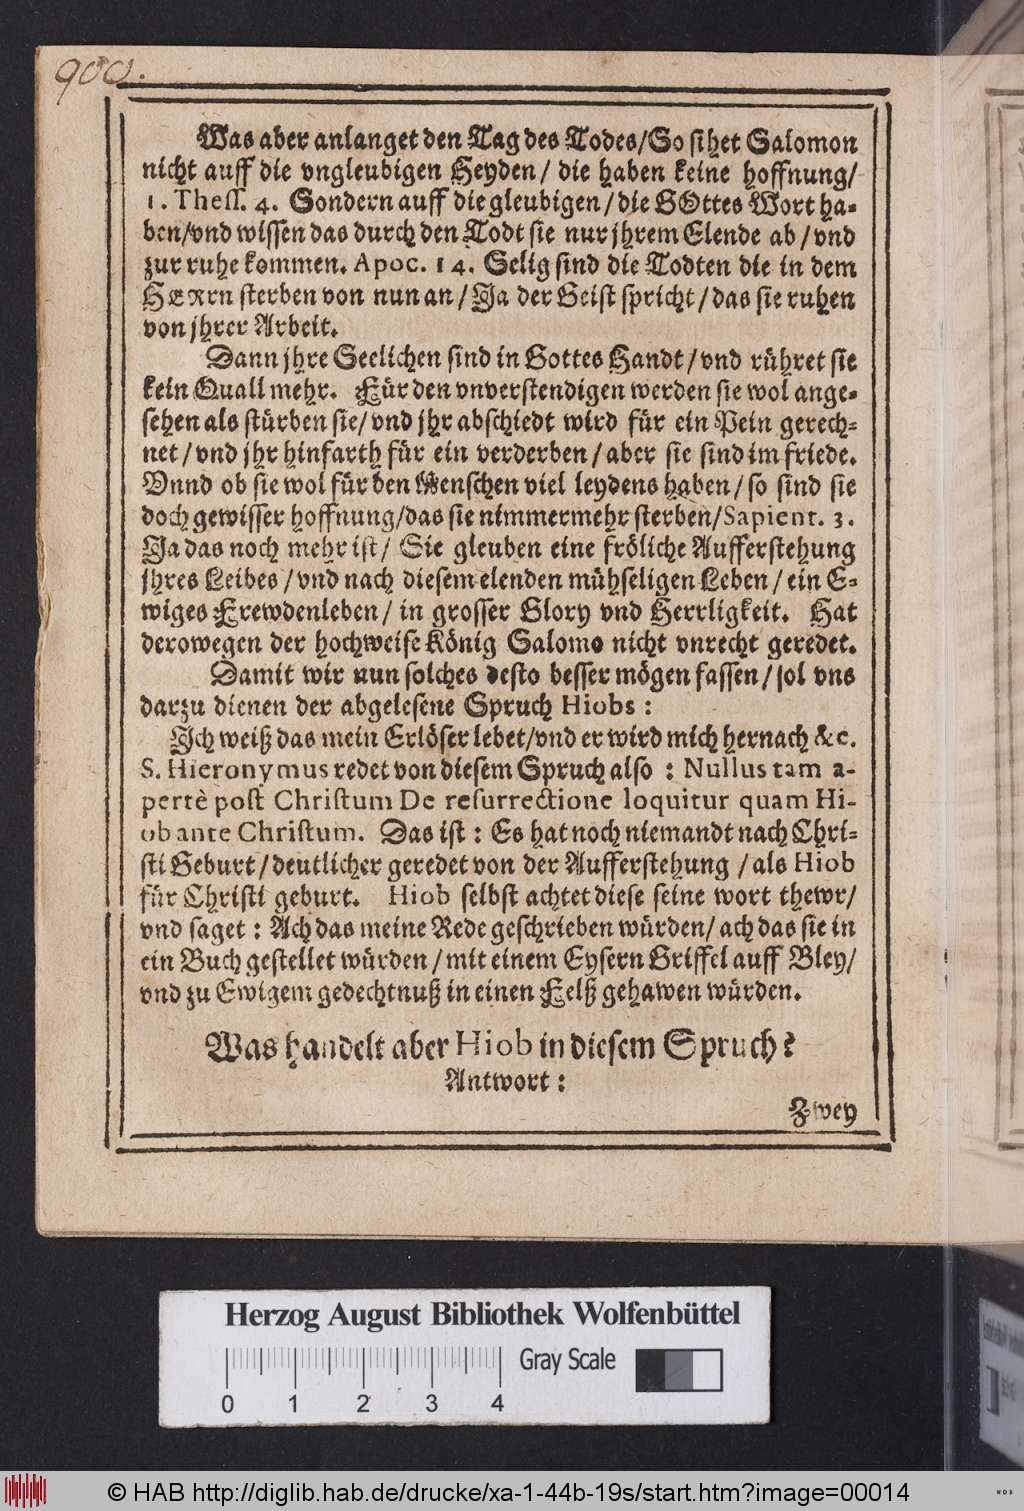 900.
Was aber anlanget den Tag des Todes/So sihet Salomon
nicht auff die vngleubigen Heyden/ die haben keine hoffnung/
1. Thess. 4. Sondern auff die gleubigen/die GOttes Wort ha-
ben/vnd wissen das durch den Todt sie nur jhrem Elende ab/vnd
zur ruhe kommen. Apoc. 14. Selig sind die Todten die in dem
HERrn sterben von nun an/Ja der Geist spricht/das sie ruhen
von jhrer Arbeit.
Dann jhre Seelichen sind in Gottes Handt/vnd rühret sie
kein Quall mehr. Für den vnverstendigen werden sie wol ange-
sehen als stürben sie/vnd jhr abschiedt wird für ein Pein gerech-
net/vnd jhr hinfarth für ein verderben/aber sie sind im friede.
Vnnd ob sie wol für den Menschen viel leydens haben/so sind sie
doch gewisser hoffnung/das sie nimmermehr sterben/Sapient. 3.
Ja das noch mehr ist/ Sie gleuben eine fröliche Aufferstehung
jhres Leibes/vnd nach diesem elenden mühseligen Leben/ein E-
wiges Frewdenleben/ in grosser Glory vnd Herrligkeit. Hat
derowegen der hochweise König Salomo nicht vnrecht geredet.
Damit wir nun solches desto besser mögen fassen/sol vns
darzu dienen der abgelesene Spruch Hiobs:
Ich weiß das mein Erlöser lebet/vnd er wird mich hernach &c.
S. Hieronymus redet von diesem Spruch also: Nullus tam a-
pertè post Christum De resurrectione loquitur quam Hi-
ob ante Christum. Das ist: Es hat noch niemandt nach Chri-
sti Geburt/deutlicher geredet von der Aufferstehung/als Hiob
für Christi geburt. Hiob selbst achtet diese seine wort thewr/
vnd saget: Ach das meine Rede geschrieben würden/ach das sie in
ein Buch gestellet würden/mit einem Eysern Griffel auff Bley/
vnd zu Ewigem gedechtnuß in einen Felß gehawen würden.
Was handelt aber Hiob in diesem Spruch?
Antwort:
Zwey
Herzog August Bibliothek Wolfenbüttel
Gray Scale
0 1 2 3 4
© HAB http://diglib.hab.de/drucke/xa-1-44b-19s/start.htm?image=00014